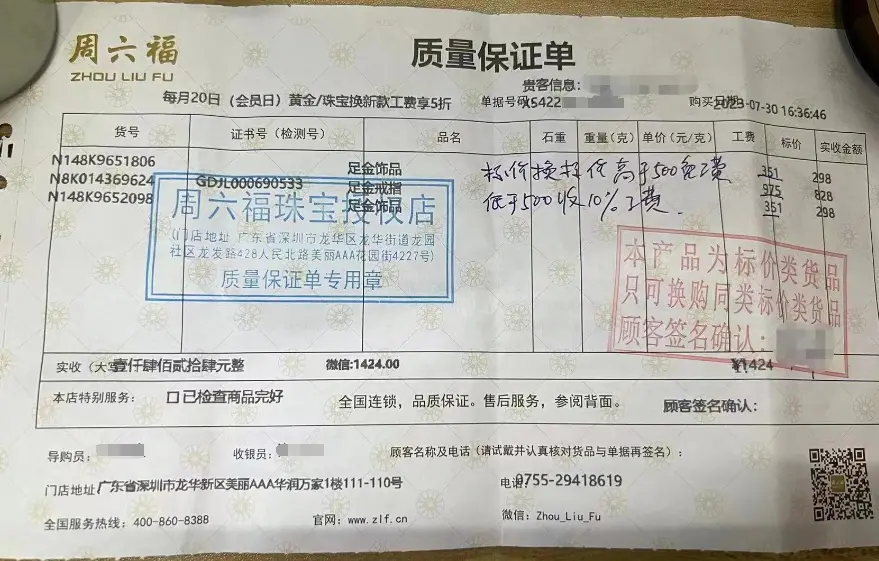 周六福
ZHOU LIU FU
质量保证单
贵客信息：
每月20日（会员日）黄金/珠宝换新款工费享5折
单据号码X5422
购买日期2023-07-30 16:36:46
货号 证书号（检测号） 品名 石重 重量(克) 单价(元/克) 工费 标价 实收金额
N148K9651806 足金饰品 351 298
N8K014369624 GDJL000690533 足金戒指 975 828
N148K9652098 足金饰品 351 298
标价换标价高于500免工费
低于500收10%工费.
周六福珠宝授权店
(门店地址 广东省深圳市龙华区龙华街道龙园
社区龙发路428人民北路美丽AAA花园街4227号)
质量保证单专用章
本产品为标价类货品
只可换购同类标价类货品
顾客签名确认：
实收（大写 壹仟肆佰贰拾肆元整 微信:1424.00 ¥1424
本店特别服务： 口已检查商品完好 全国连锁，品质保证。售后服务，参阅背面。 顾客签名确认：
导购员： 收银员： 顾客名称及电话（请试戴并认真核对货品与单据再签名）：
门店地址 广东省深圳市龙华新区美丽AAA华润万家1楼111-110号 电话 0755-29418619
全国服务热线：400-860-8388 官网：www.zlf.cn 微信：Zhou_Liu_Fu